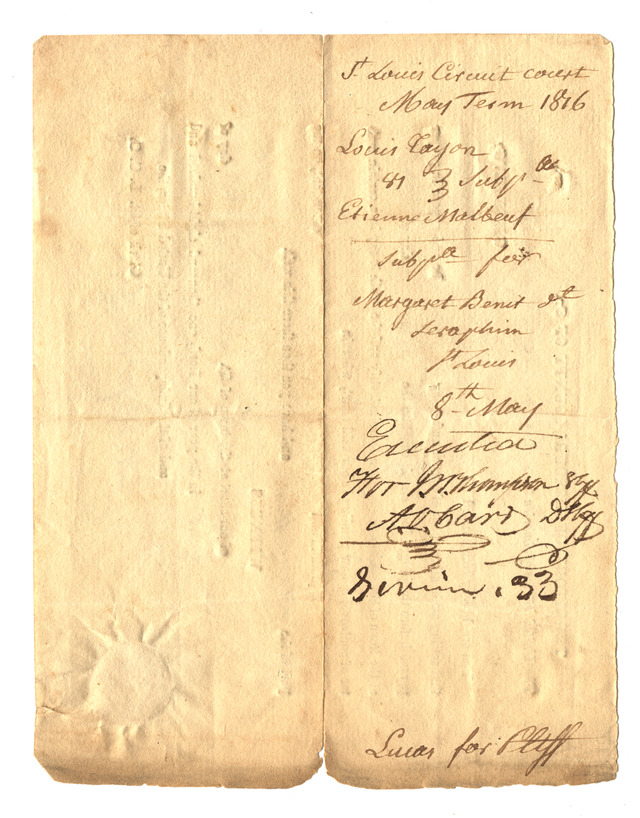 St Louis Circuit court
May Term 1816
Louis Tayon
Subpa
Etienne Malbeuf
Subpa for
Margaret Benit dt
Seraphim
St Louis
8th May
Executed
For Thompson Shff
A. V. Carr D Shff
33
Lucas for Pltff